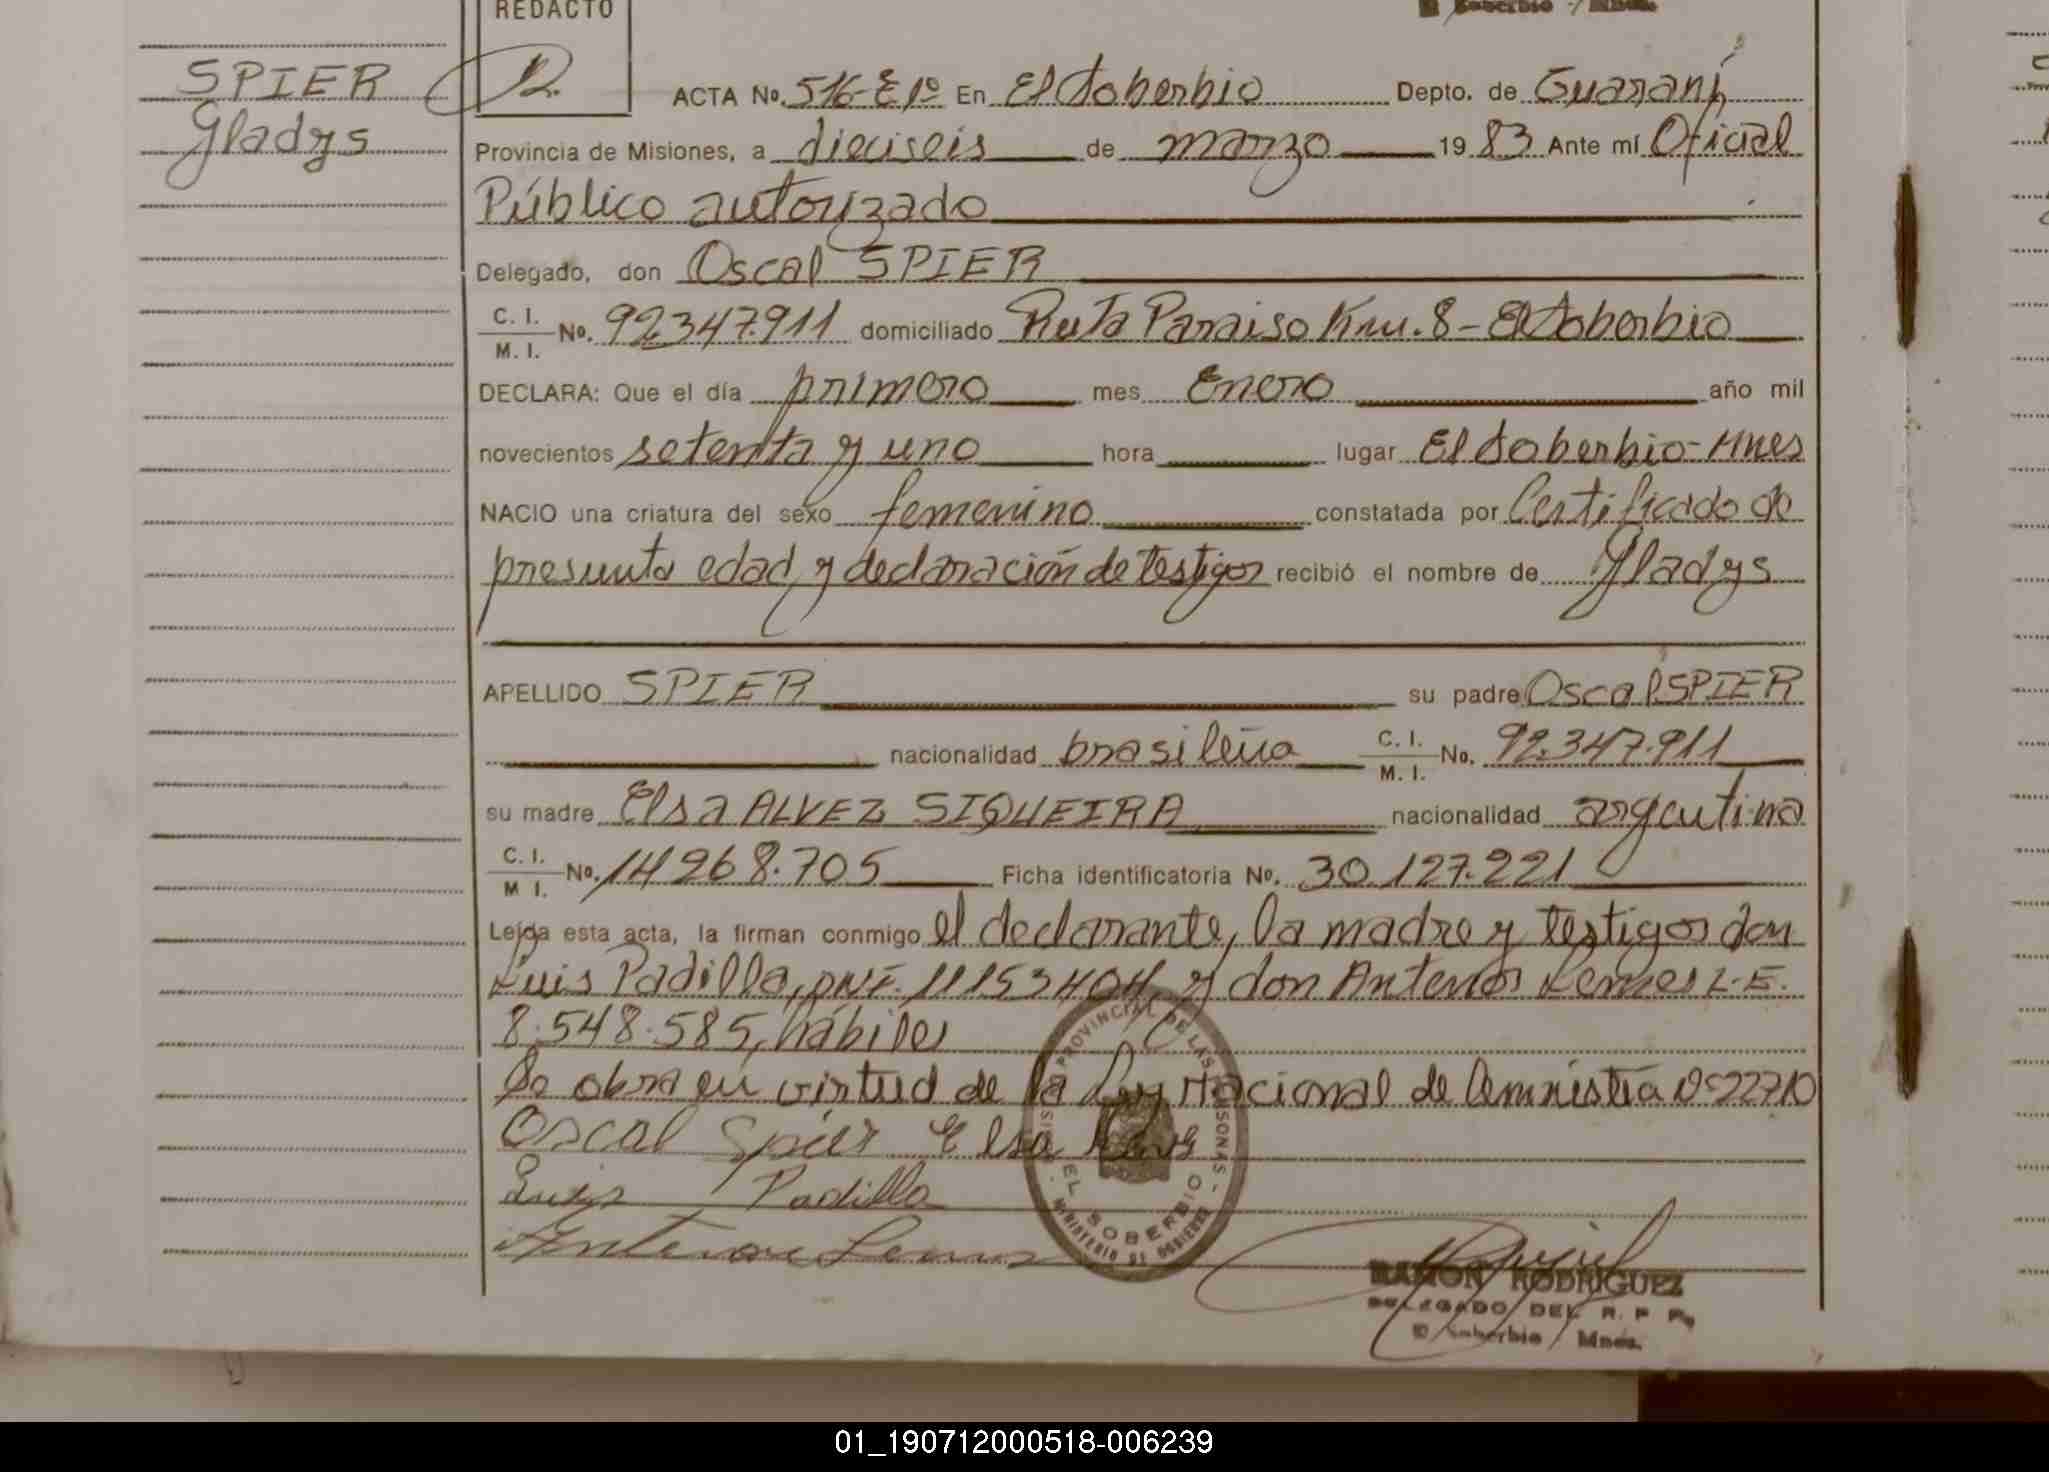 REDACTO
El Soberbio - Mnes.
SPIER
Gladys
ACTA No. 516-E 1º En El Soberbio Depto. de Guaraní
Provincia de Misiones, a dieciseis de marzo 1983 Ante mí Oficial
Público autorizado
Delegado, don Oscal SPIER
C. I.
M. I. No. 92.347.911 domiciliado Ruta Paraiso Km. 8 - El Soberbio
DECLARA: Que el día primero mes Enero año mil
novecientos setenta y uno hora lugar El Soberbio - Mnes
NACIO una criatura del sexo femenino constatada por Certificado de
presunta edad y declaración de testigos recibió el nombre de Gladys
APELLIDO SPIER su padre Oscal SPIER
nacionalidad brasileña C. I.
M. I. No. 92.347.911
su madre Elsa ALVEZ SIQUEIRA nacionalidad argentina
C. I.
M I. No. 14268.705 Ficha identificatoria No. 30.127.221
Leída esta acta, la firman conmigo el declarante, la madre y testigos don
Luis Padilla, DNI. 11153404, y don Antenor Lemes L.E.
8.548.585, hábiles
Se obra en virtud de la Ley Nacional de Amnistia Nº 22710
Oscal Spier Elsa
Luis Padilla
PROVINCIAL DE LAS PERSONAS
EL SOBERBIO
MINISTERIO DE GOBIERNO
RAMON RODRIGUEZ
DELEGADO DEL R. P. P.
El Soberbio / Mnes.
01_190712000518-006239